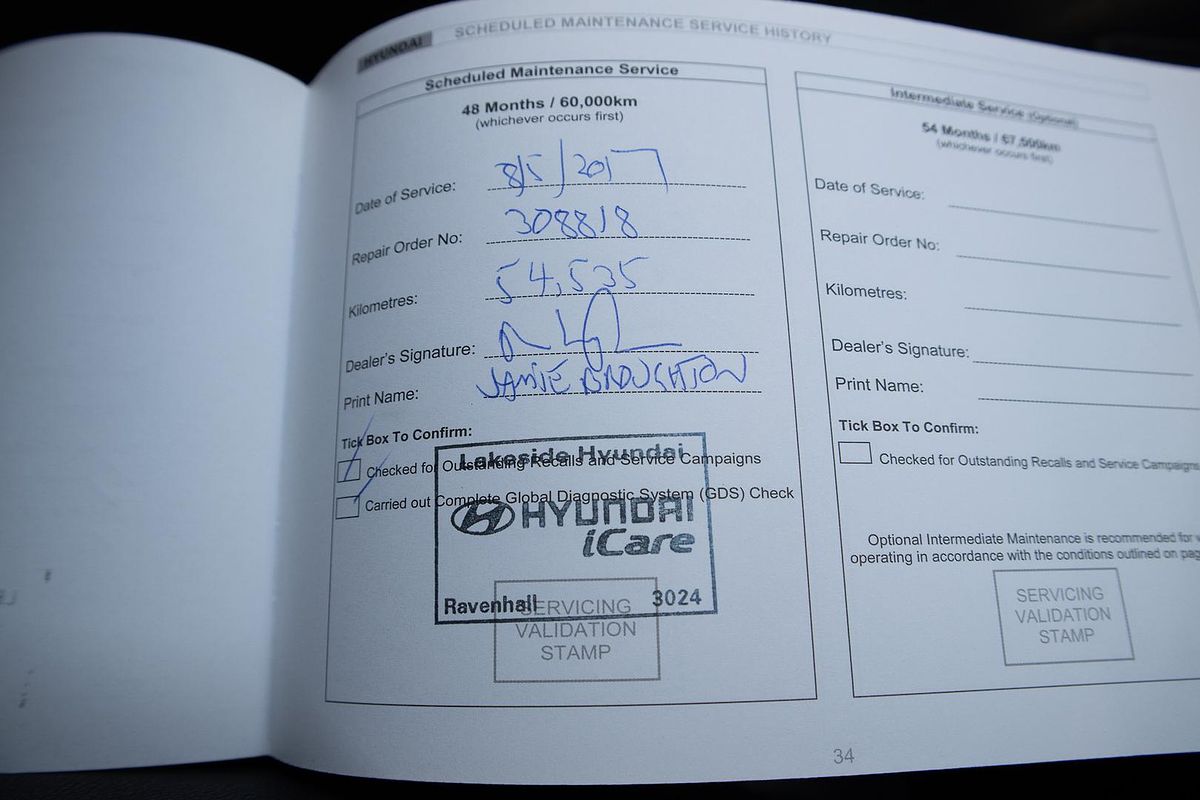 HYUNDAI SCHEDULED MAINTENANCE SERVICE HISTORY
Scheduled Maintenance Service
48 Months / 60,000km
(whichever occurs first)
Date of Service: 8/5/2017
Repair Order No: 308818
Kilometres: 54,535
Dealer's Signature:
Print Name: JAMIE BROUGHTON
Tick Box To Confirm:
Checked for Outstanding Recalls and Service Campaigns
Carried out Complete Global Diagnostic System (GDS) Check
Lakeside Hyundai
HYUNDAI
iCare
Ravenhall 3024
SERVICING
VALIDATION
STAMP
Intermediate Service (Optional)
54 Months / 67,500km
(whichever occurs first)
Date of Service:
Repair Order No:
Kilometres:
Dealer's Signature:
Print Name:
Tick Box To Confirm:
Checked for Outstanding Recalls and Service Campaigns
Optional Intermediate Maintenance is recommended for
operating in accordance with the conditions outlined on
SERVICING
VALIDATION
STAMP
34